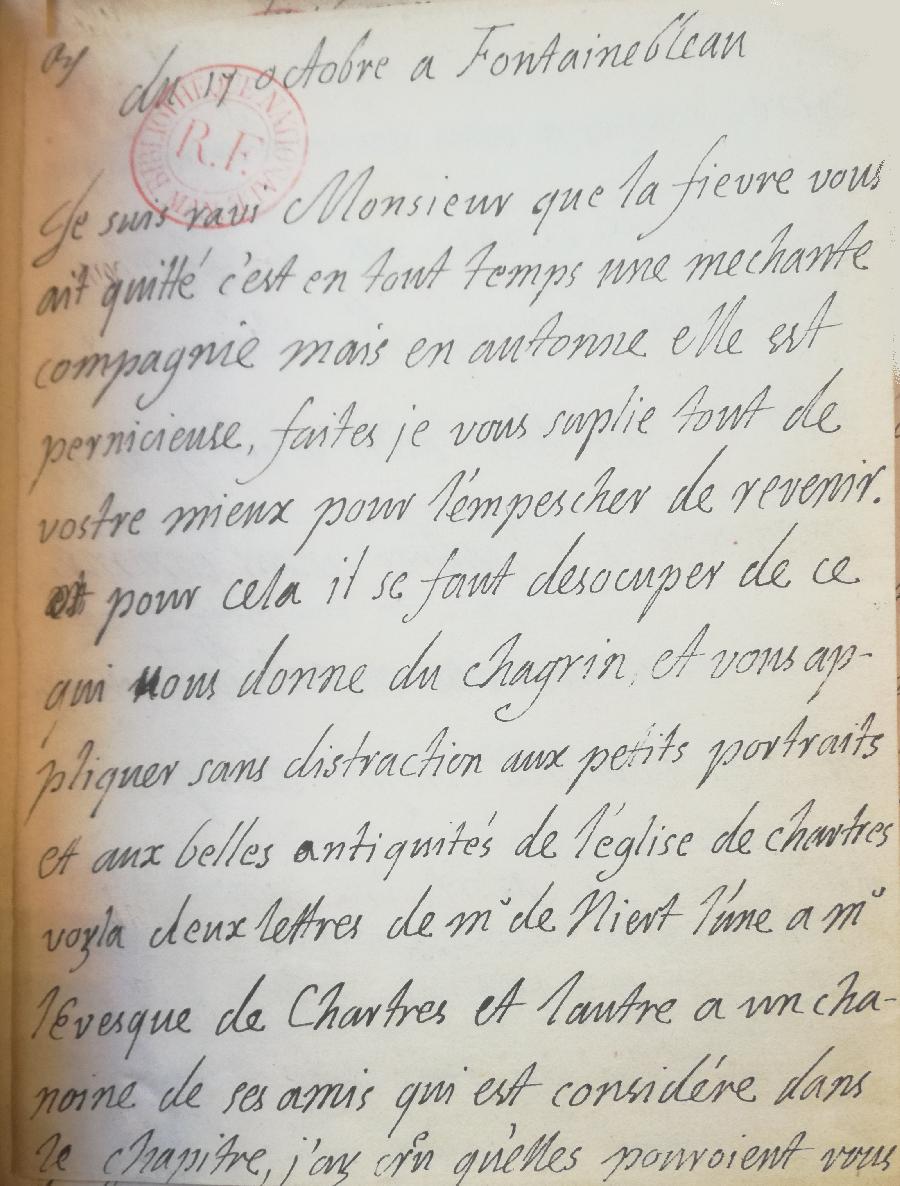 du 17 octobre a Fontainebleau
BIBLIOTHEQUE NATIONALE
R.F.
Je suis ravi Monsieur que la fievre vous
ait quitté c'est en tout temps une mechante
compagnie mais en autonne elle est
pernicieuse, faites je vous suplie tout de
vostre mieux pour l'émpescher de revenir.
et pour cela il se faut desocuper de ce
qui nous donne du chagrin, et vous ap-
pliquer sans distraction aux petits portraits
et aux belles antiquités de l'église de chartres
voyla deux lettres de mr de Niert l'une a mr
l'Evesque de Chartres et lautre a un cha-
noine de ses amis qui est considére dans
le chapitre, j'ay crû qu'elles pouroient vous